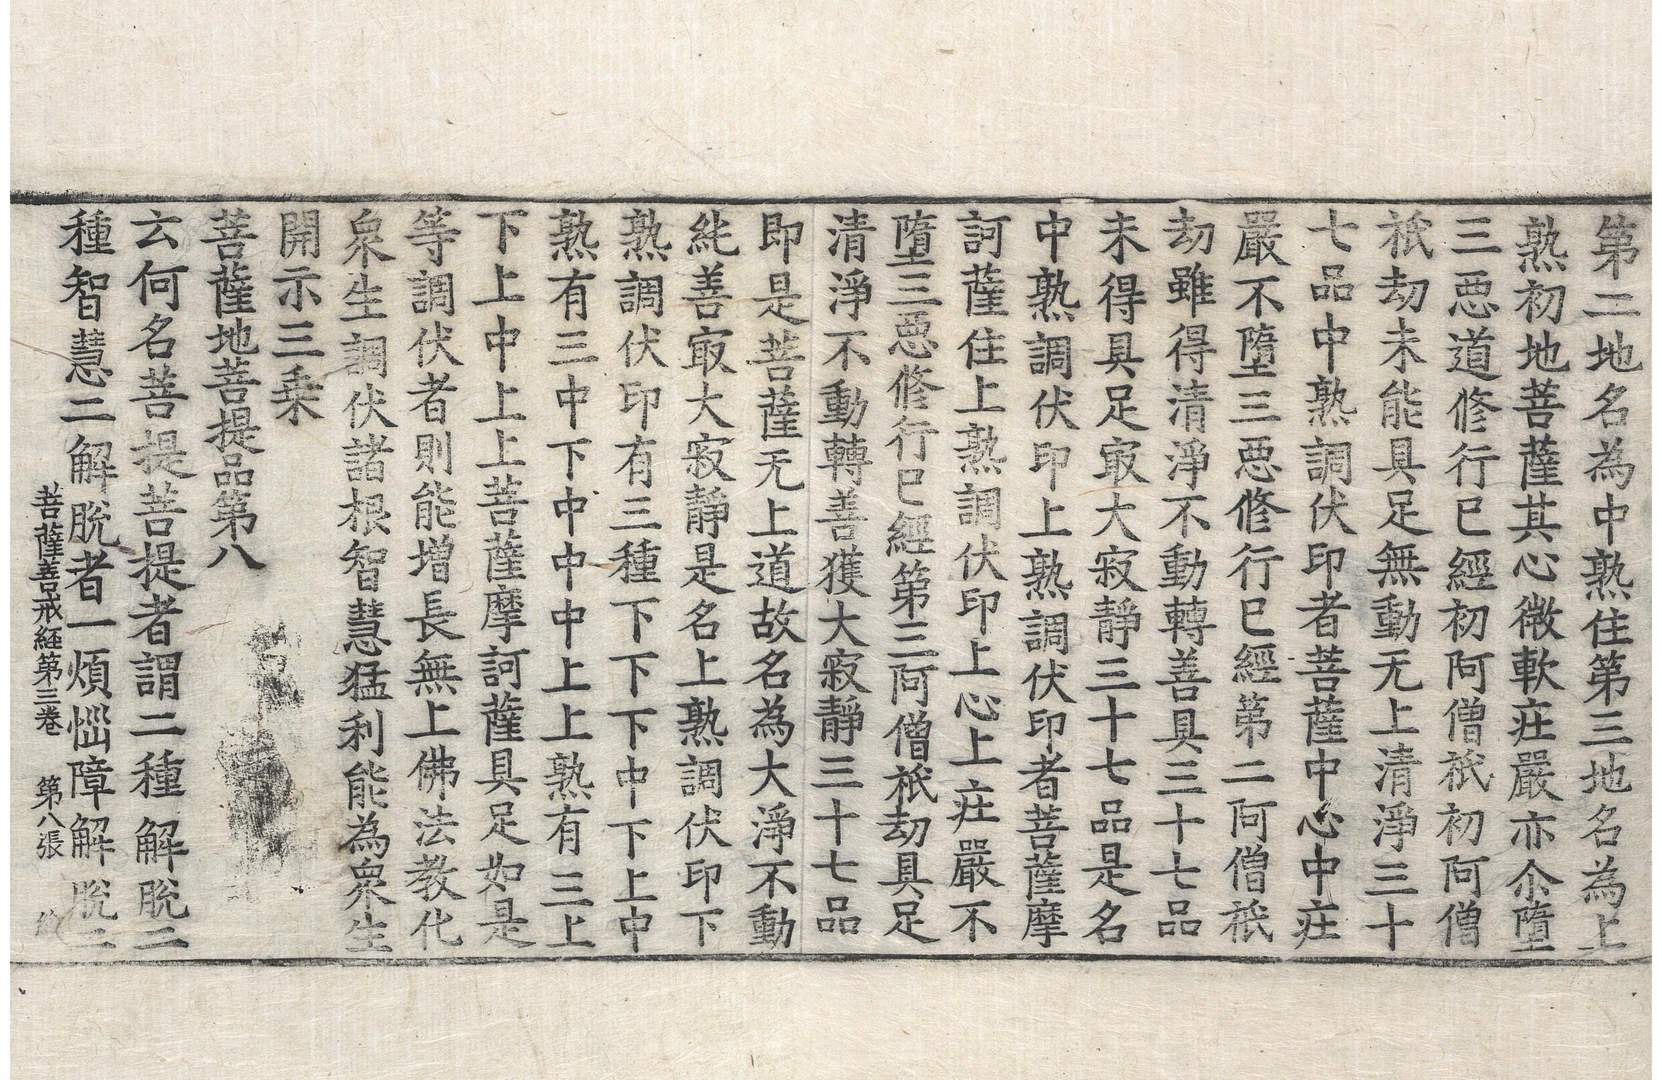 第二地名為中熟住第三地名為上
熟初地菩薩其心微軟庄嚴亦尒墮
三惡道修行已經初阿僧祇初阿僧
祇劫未能具足無動无上清淨三十
七品中熟調伏印者菩薩中心中庄
嚴不墮三惡修行已經第二阿僧祇
劫雖得清淨不動轉善具三十七品
未得具足㝡大寂靜三十七品是名
中熟調伏印上熟調伏印者菩薩摩
訶薩住上熟調伏印上心上庄嚴不
墮三惡修行已經第三阿僧祇劫具足
清淨不動轉善獲大寂靜三十七品
即是菩薩无上道故名為大淨不動
純善㝡大寂靜是名上熟調伏印下
熟調伏印有三種下下下中下上中
熟有三中下中中中上上熟有三上
下上中上上菩薩摩訶薩具足如是
等調伏者則能增長無上佛法教化
衆生調伏諸根智慧猛利能為衆生
開示三乗
菩薩地菩提品第八
云何名菩提菩提者謂二種解脫二
種智慧二解脫者一煩惱障解脫二
菩薩善戒經第三卷 第八張